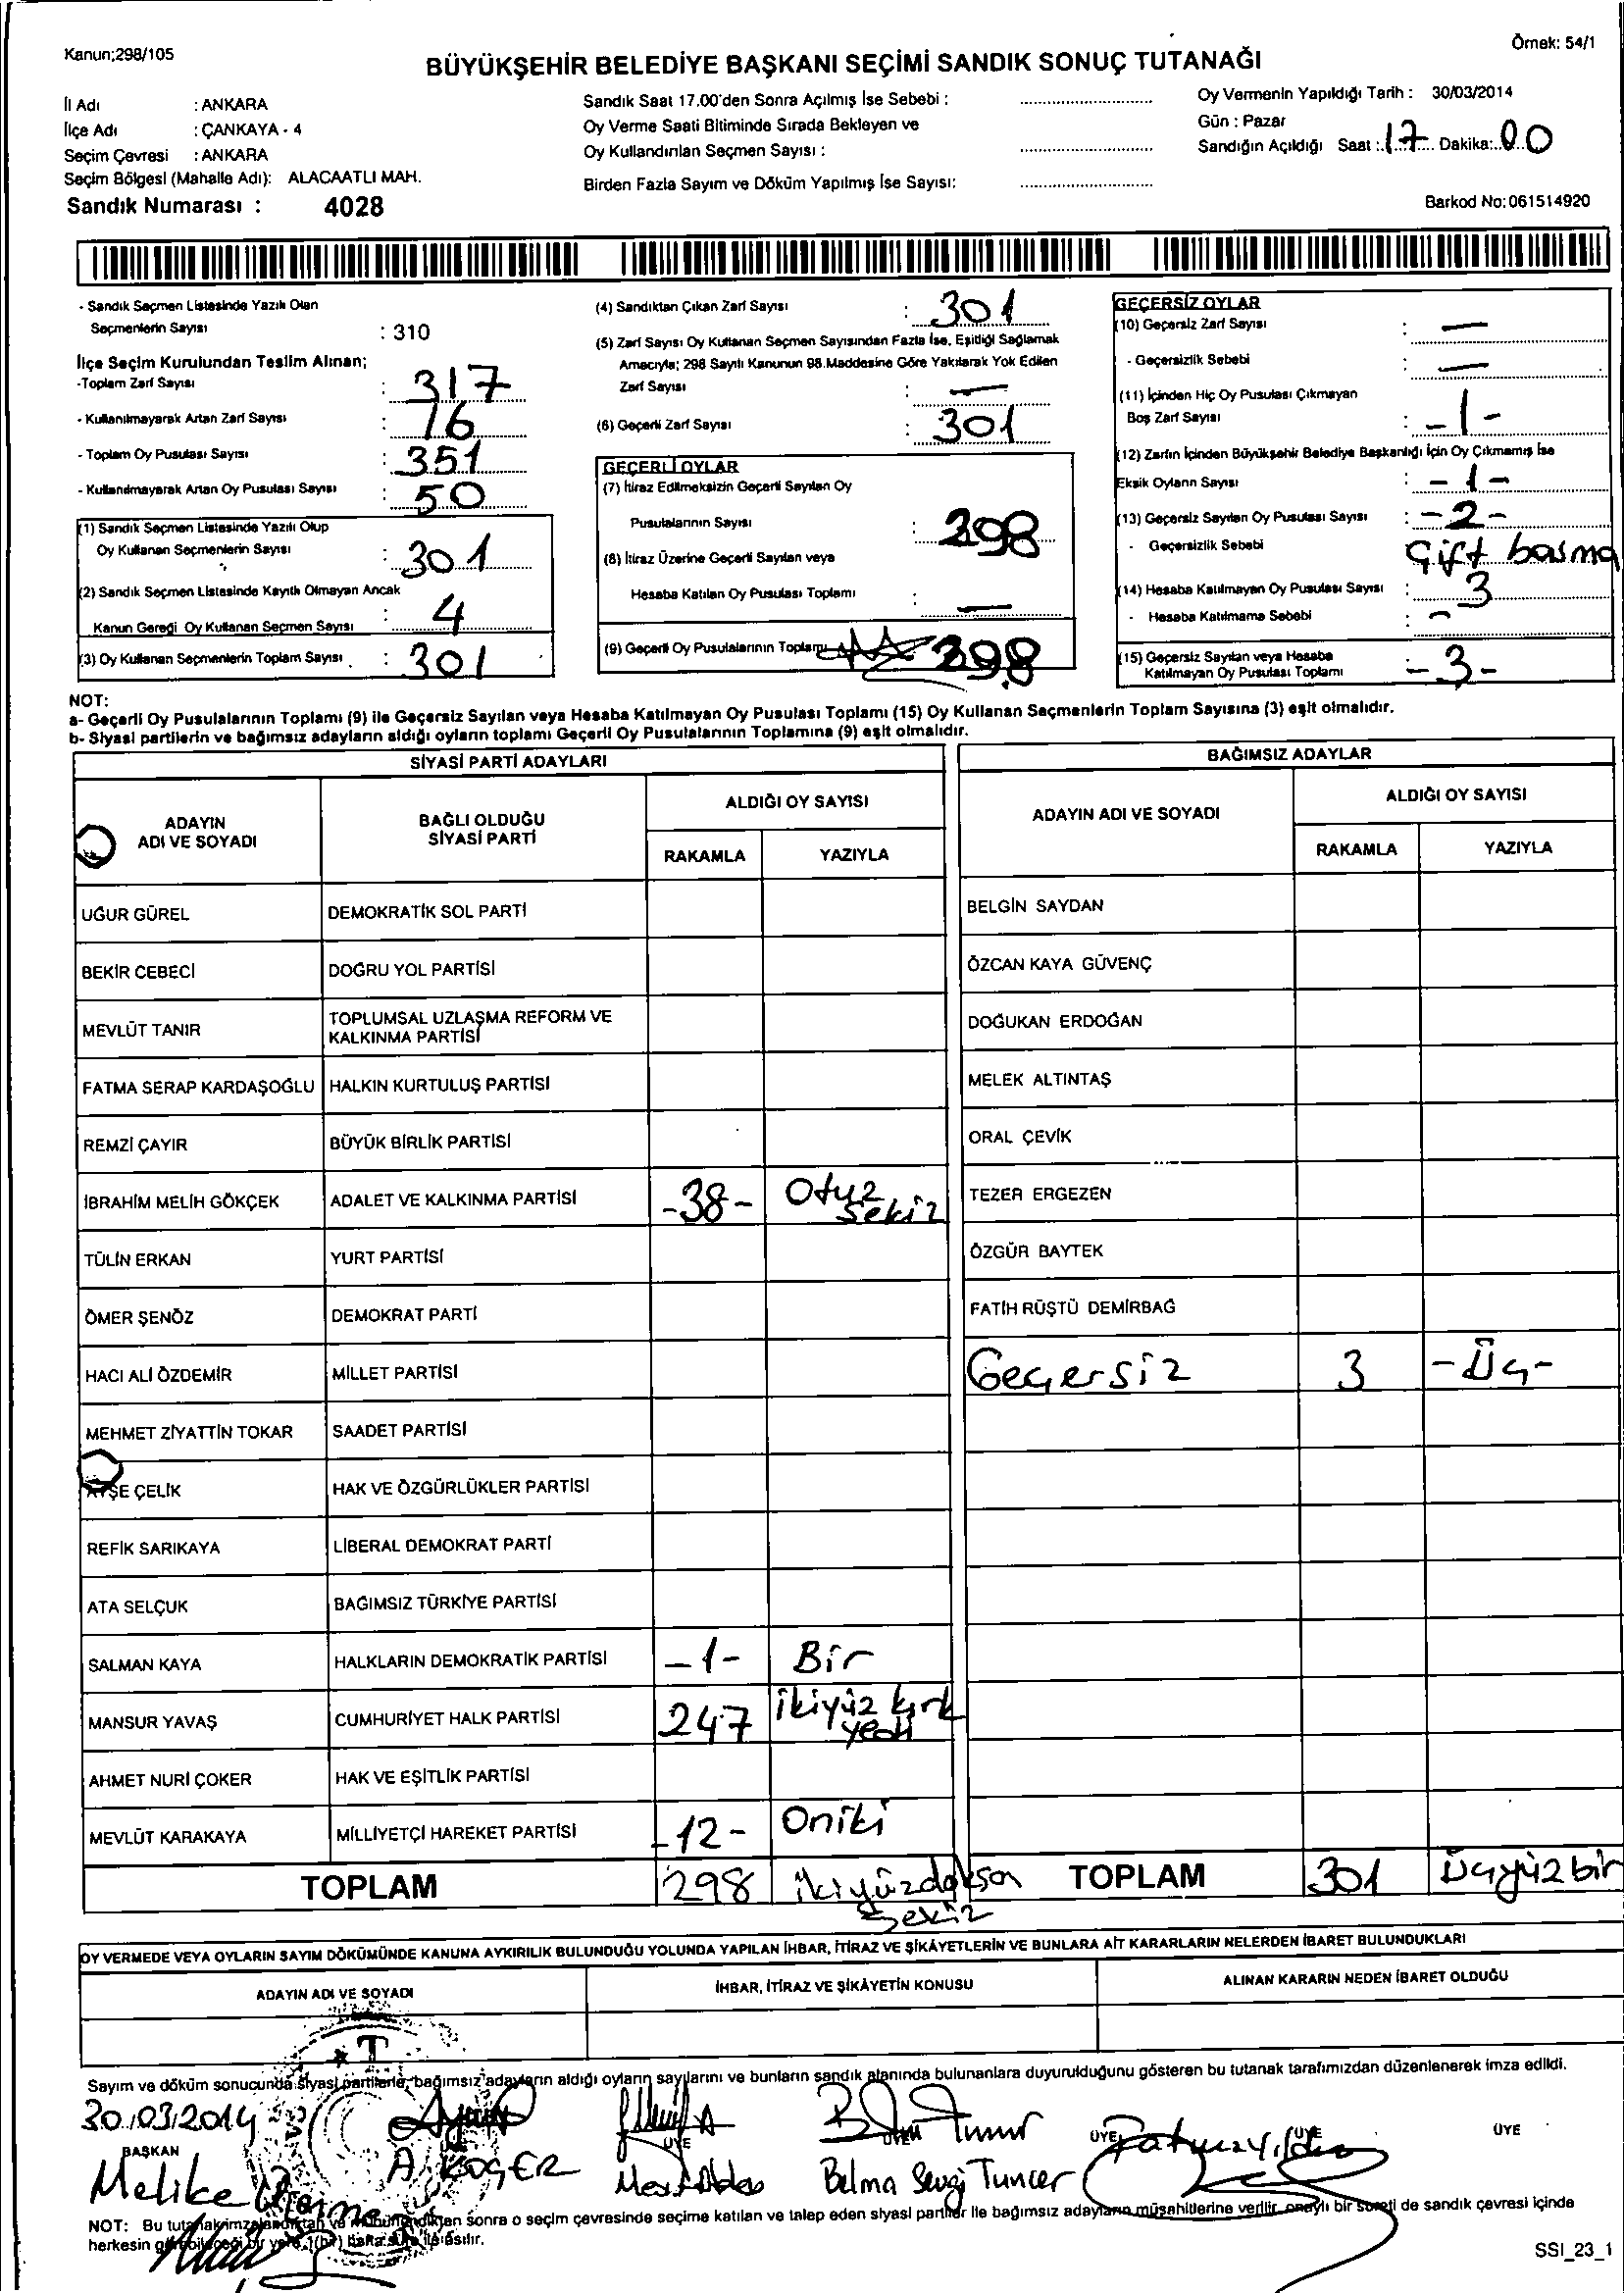 Kanun;298/105
Örnek: 54/1
BÜYÜKŞEHİR BELEDİYE BAŞKANI SEÇİMİ SANDIK SONUÇ TUTANAĞI
İl Adı : ANKARA
İlçe Adı : ÇANKAYA - 4
Seçim Çevresi : ANKARA
Seçim Bölgesi (Mahalle Adı): ALACAATLI MAH.
Sandık Numarası : 4028
Sandık Saat 17.00'den Sonra Açılmış İse Sebebi :
Oy Verme Saati Bitiminde Sırada Bekleyen ve
Oy Kullandırılan Seçmen Sayısı :
Birden Fazla Sayım ve Döküm Yapılmış İse Sayısı:
Oy Vermenin Yapıldığı Tarih : 30/03/2014
Gün : Pazar
Sandığın Açıldığı Saat : 17 Dakika: 00
Barkod No:061514920
- Sandık Seçmen Listesinde Yazılı Olan
Seçmenlerin Sayısı : 310
İlçe Seçim Kurulundan Teslim Alınan;
-Toplam Zarf Sayısı : 317
- Kullanılmayarak Artan Zarf Sayısı : 16
- Toplam Oy Pusulası Sayısı : 351
- Kullanılmayarak Artan Oy Pusulası Sayısı : 50
(1) Sandık Seçmen Listesinde Yazılı Olup
Oy Kullanan Seçmenlerin Sayısı : 301
(2) Sandık Seçmen Listesinde Kayıtlı Olmayan Ancak
Kanun Gereği Oy Kullanan Seçmen Sayısı : 4
(3) Oy Kullanan Seçmenlerin Toplam Sayısı : 301
(4) Sandıktan Çıkan Zarf Sayısı : 301
(5) Zarf Sayısı Oy Kullanan Seçmen Sayısından Fazla İse, Eşitliği Sağlamak
Amacıyla; 298 Sayılı Kanunun 98.Maddesine Göre Yakılarak Yok Edilen
Zarf Sayısı : —
(6) Geçerli Zarf Sayısı : 301
GEÇERLİ OYLAR
(7) İtiraz Edilmeksizin Geçerli Sayılan Oy
Pusulalarının Sayısı : 298
(8) İtiraz Üzerine Geçerli Sayılan veya
Hesaba Katılan Oy Pusulası Toplamı : —
(9) Geçerli Oy Pusulalarının Toplamı 298
GEÇERSİZ OYLAR
(10) Geçersiz Zarf Sayısı : —
- Geçersizlik Sebebi : —
(11) İçinden Hiç Oy Pusulası Çıkmayan
Boş Zarf Sayısı : -1-
(12) Zarfın İçinden Büyükşehir Belediye Başkanlığı İçin Oy Çıkmamış İse
Eksik Oyların Sayısı : -1-
(13) Geçersiz Sayılan Oy Pusulası Sayısı : -2-
- Geçersizlik Sebebi Çift basma
(14) Hesaba Katılmayan Oy Pusulası Sayısı : 3
- Hesaba Katılmama Sebebi : -
(15) Geçersiz Sayılan veya Hesaba
Katılmayan Oy Pusulası Toplamı : -3-
NOT:
a- Geçerli Oy Pusulalarının Toplamı (9) ile Geçersiz Sayılan veya Hesaba Katılmayan Oy Pusulası Toplamı (15) Oy Kullanan Seçmenlerin Toplam Sayısına (3) eşit olmalıdır.
b- Siyasi partilerin ve bağımsız adayların aldığı oyların toplamı Geçerli Oy Pusulalarının Toplamına (9) eşit olmalıdır.
SİYASİ PARTİ ADAYLARI
ADAYIN ADI VE SOYADI
BAĞLI OLDUĞU SİYASİ PARTİ
ALDIĞI OY SAYISI
RAKAMLA YAZIYLA
UĞUR GÜREL DEMOKRATİK SOL PARTİ
BEKİR CEBECİ DOĞRU YOL PARTİSİ
MEVLÜT TANIR TOPLUMSAL UZLAŞMA REFORM VE KALKINMA PARTİSİ
FATMA SERAP KARDAŞOĞLU HALKIN KURTULUŞ PARTİSİ
REMZİ ÇAYIR BÜYÜK BİRLİK PARTİSİ
İBRAHİM MELİH GÖKÇEK ADALET VE KALKINMA PARTİSİ -38- Otuz sekiz
TÜLİN ERKAN YURT PARTİSİ
ÖMER ŞENÖZ DEMOKRAT PARTİ
HACI ALİ ÖZDEMİR MİLLET PARTİSİ
MEHMET ZİYATTİN TOKAR SAADET PARTİSİ
AYŞE ÇELİK HAK VE ÖZGÜRLÜKLER PARTİSİ
REFİK SARIKAYA LİBERAL DEMOKRAT PARTİ
ATA SELÇUK BAĞIMSIZ TÜRKİYE PARTİSİ
SALMAN KAYA HALKLARIN DEMOKRATİK PARTİSİ -1- Bir
MANSUR YAVAŞ CUMHURİYET HALK PARTİSİ 247 İkiyüz kırk yedi
AHMET NURİ ÇOKER HAK VE EŞİTLİK PARTİSİ
MEVLÜT KARAKAYA MİLLİYETÇİ HAREKET PARTİSİ -12- Oniki
TOPLAM 298 ikiyüzdoksan sekiz
BAĞIMSIZ ADAYLAR
ADAYIN ADI VE SOYADI
ALDIĞI OY SAYISI
RAKAMLA YAZIYLA
BELGİN SAYDAN
ÖZCAN KAYA GÜVENÇ
DOĞUKAN ERDOĞAN
MELEK ALTINTAŞ
ORAL ÇEVİK
TEZER ERGEZEN
ÖZGÜR BAYTEK
FATİH RÜŞTÜ DEMİRBAĞ
Geçersiz 3 -Üç-
TOPLAM 301 Üçyüzbir
OY VERMEDE VEYA OYLARIN SAYIM DÖKÜMÜNDE KANUNA AYKIRILIK BULUNDUĞU YOLUNDA YAPILAN İHBAR, İTİRAZ VE ŞİKÂYETLERİN VE BUNLARA AİT KARARLARIN NELERDEN İBARET BULUNDUKLARI
ADAYIN ADI VE SOYADI
İHBAR, İTİRAZ VE ŞİKÂYETİN KONUSU
ALINAN KARARIN NEDEN İBARET OLDUĞU
Sayım ve döküm sonucunda siyasi partilerle, bağımsız adayların aldığı oyların sayılarını ve bunların sandık alanında bulunanlara duyurulduğunu gösteren bu tutanak tarafımızdan düzenlenerek imza edildi.
30.03.2014
BAŞKAN ÜYE ÜYE ÜYE ÜYE ÜYE
Melike
A. KOÇER
Belma Sevgi Tuncer
NOT: Bu tutanak imzalandıktan ve mühürlendikten sonra o seçim çevresinde seçime katılan ve talep eden siyasi partiler ile bağımsız adayların müşahitlerine verilir, onaylı bir sureti de sandık çevresi içinde
herkesin görebileceği bir yere 1(bir) hafta süre ile asılır.
SSI_23_1